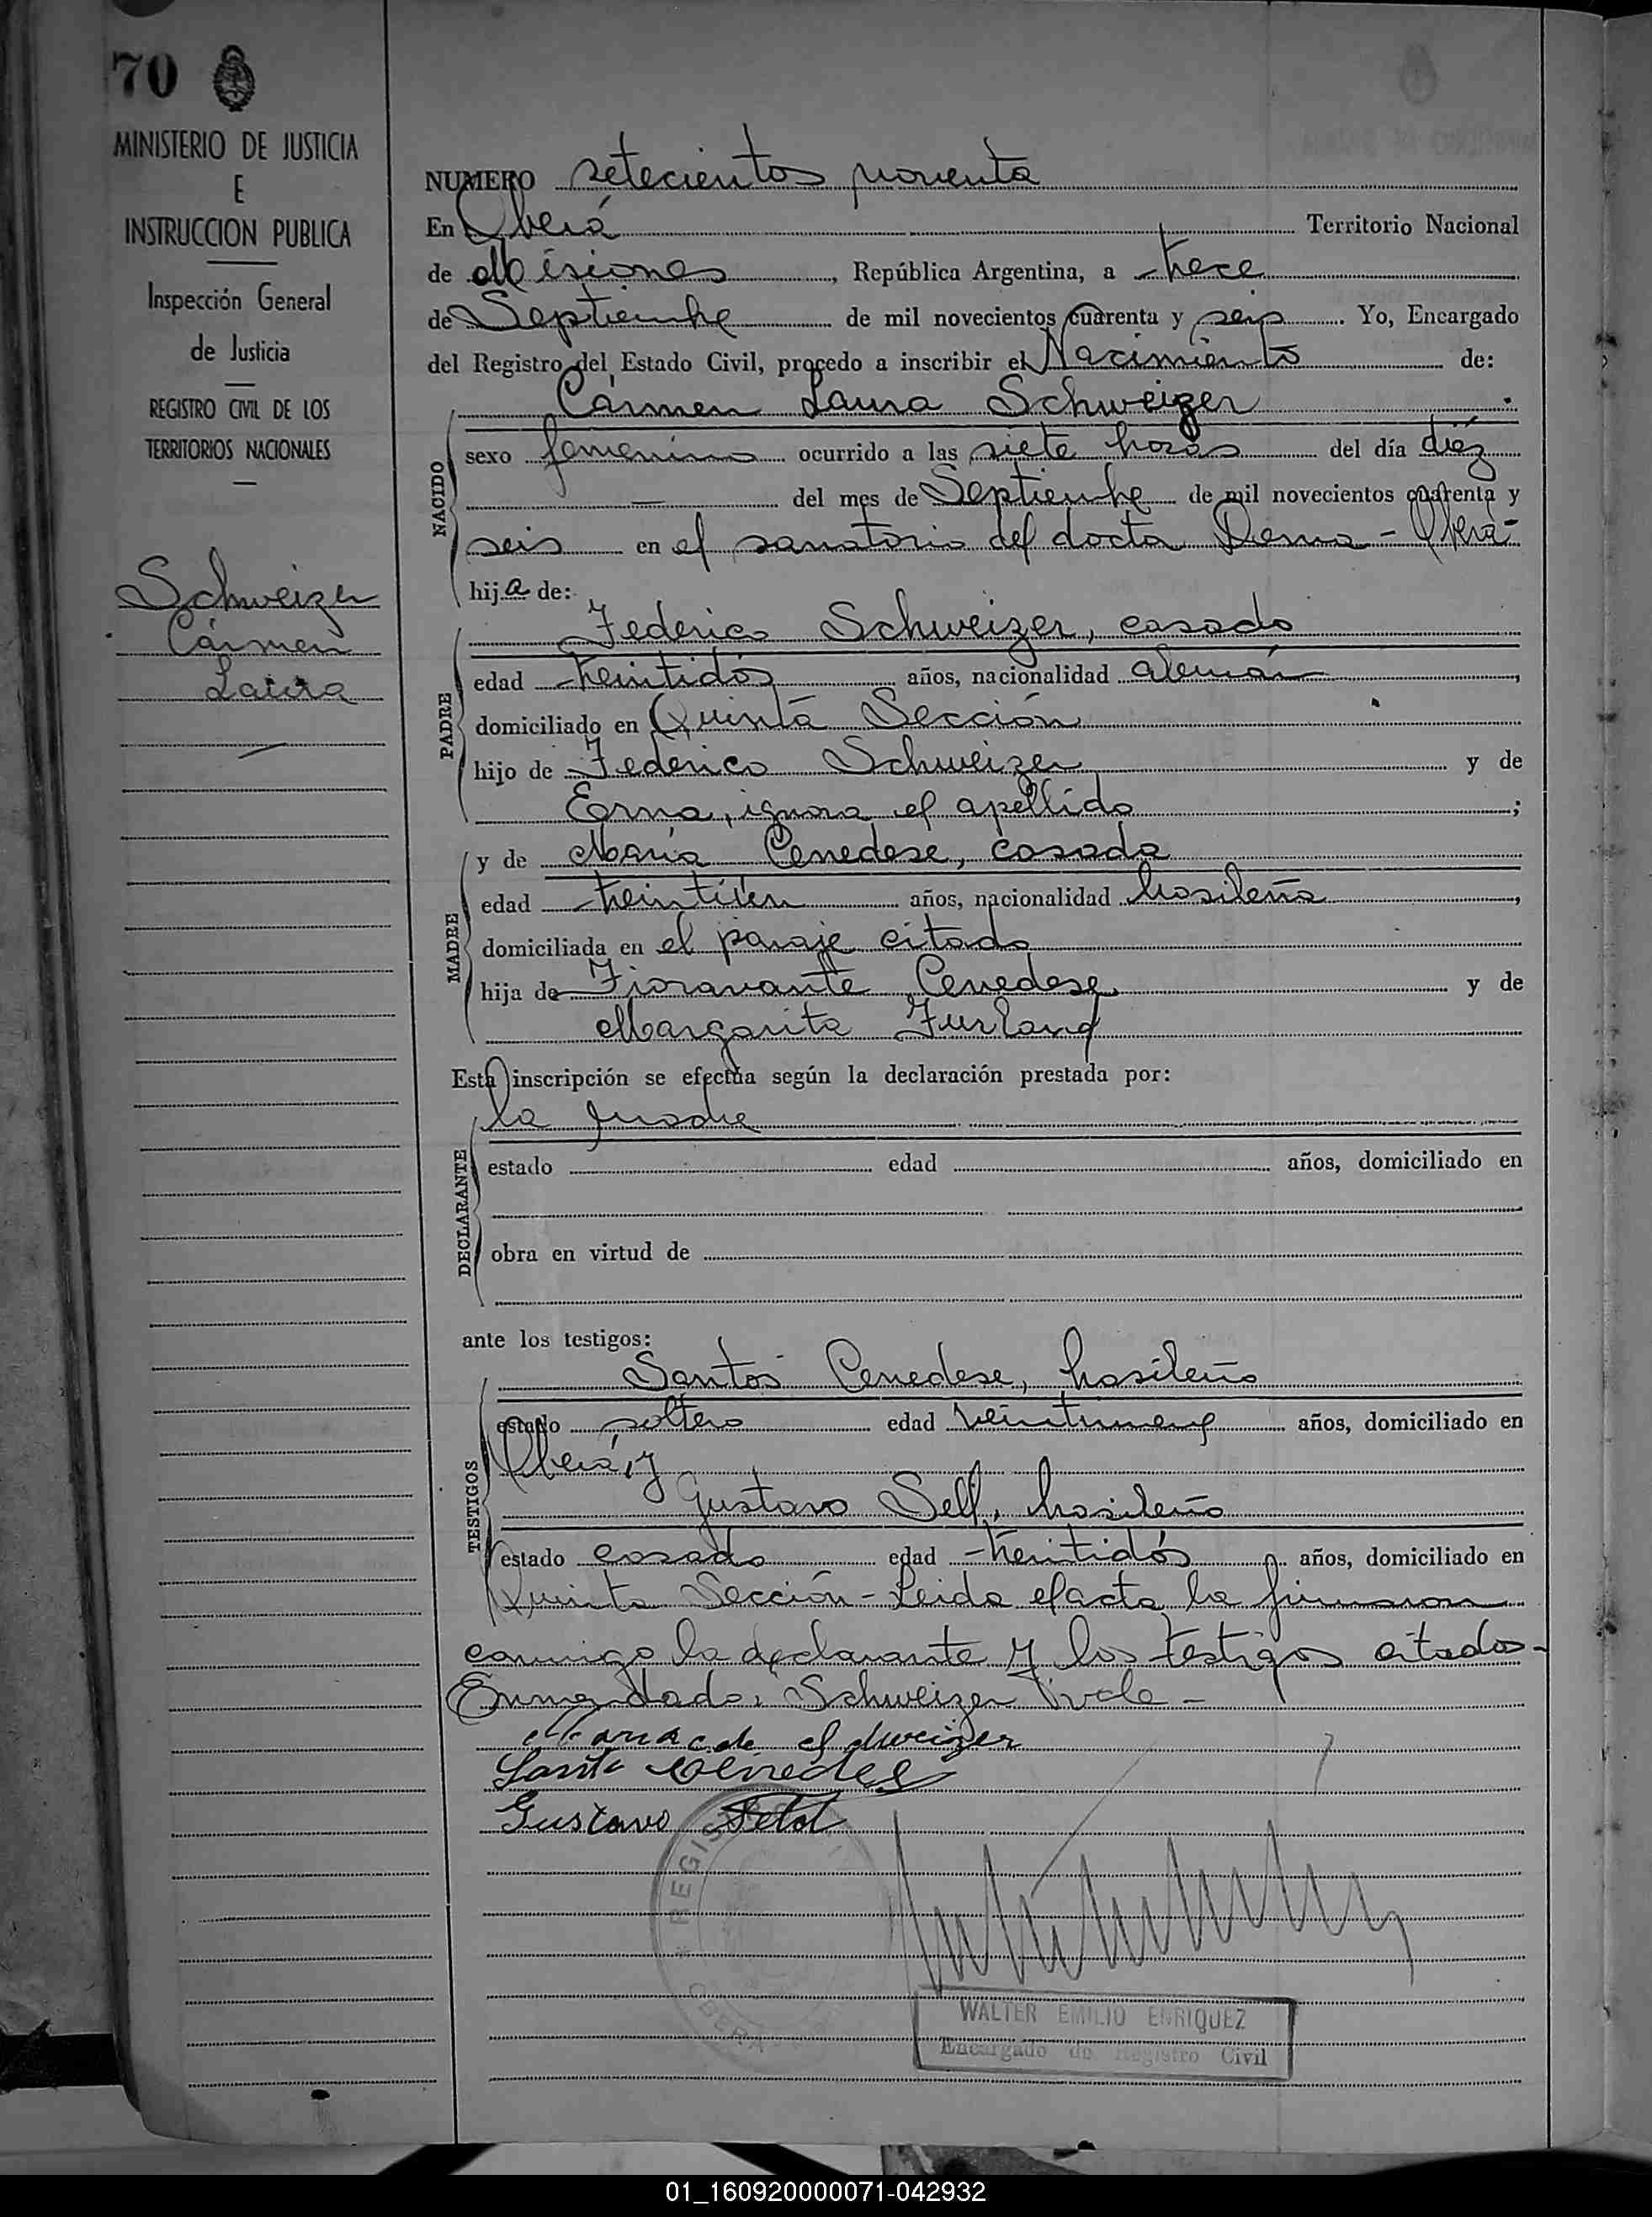 70
MINISTERIO DE JUSTICIA
E
INSTRUCCION PUBLICA
Inspección General
de Justicia
REGISTRO CIVIL DE LOS
TERRITORIOS NACIONALES
Schweizer
Cármen
Laura
NUMERO setecientos noventa
En Oberá Territorio Nacional
de Misiones, República Argentina, a trece
de Septiembre de mil novecientos cuarenta y seis. Yo, Encargado
del Registro del Estado Civil, procedo a inscribir el Nacimiento de:
Cármen Laura Schweizer
NACIDO
sexo femenino ocurrido a las siete horas del día diéz
del mes de Septiembre de mil novecientos cuarenta y
seis en el sanatorio del doctor Derna - Oberá-
hija de:
PADRE
Federico Schweizer, casado
edad treintidós años, nacionalidad alemán,
domiciliado en Quinta Sección
hijo de Federico Schweizer y de
Erna, ignora el apellido;
MADRE
y de María Cenedese, casada
edad treintiún años, nacionalidad brasileña,
domiciliada en el paraje citado
hija de Fioravante Cenedese y de
Margarita Furland
Esta inscripción se efectúa según la declaración prestada por:
DECLARANTE
la madre
estado edad años, domiciliado en
obra en virtud de
ante los testigos:
TESTIGOS
Santos Cenedese, brasileño
estado soltero edad veintinueve años, domiciliado en
Oberá, y
Gustavo Sell, brasileño
estado casado edad treintidós años, domiciliado en
Quinta Sección - Leida el acta, la firmaron
conmigo la declarante y los testigos citados-
Enmendado: Schweizer Vale-
Maria c de Schweizer
Santo Cenedes
Gustavo
REGIS
OBERA
WALTER EMILIO ENRIQUEZ
Encargado de Registro Civil
01_160920000071-042932